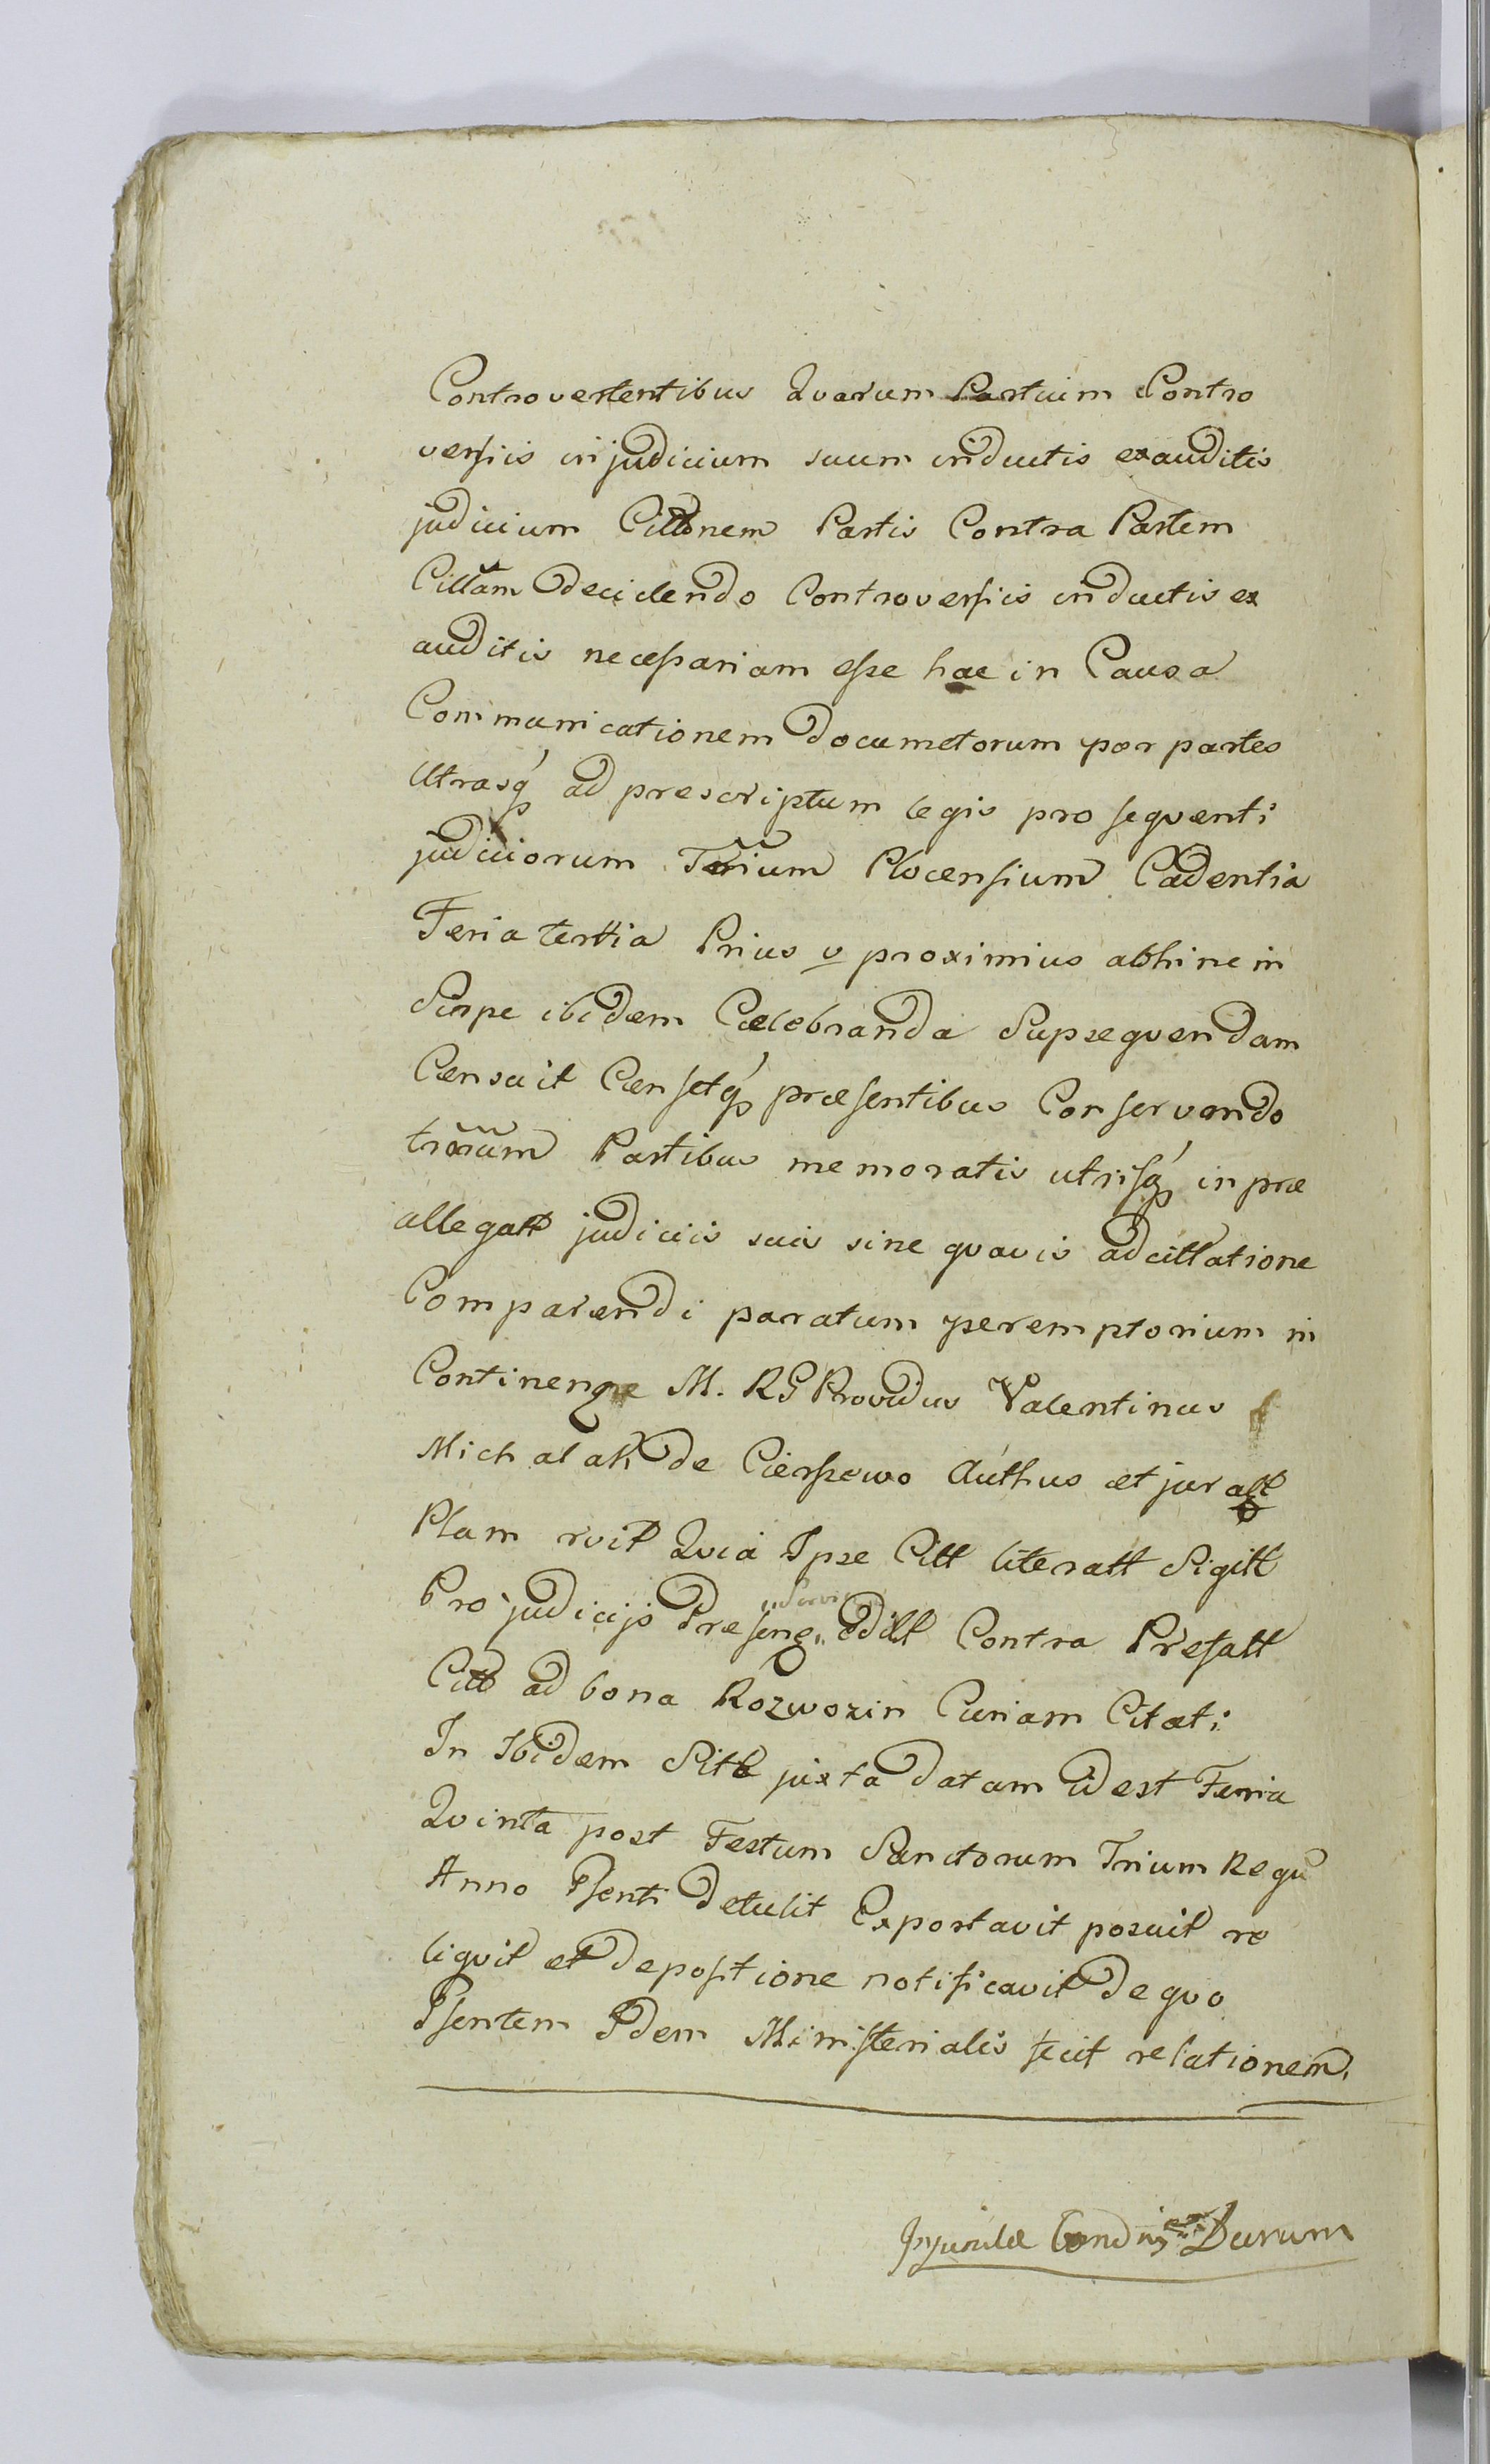 Controvertentibus Quarum Partium Contro
versiis in judicium suum inductis exauditis
judicium Cittõnem Partis Contra Partem
Cittãm decidendo Controversiis inductis ex
auditis necessariam esse hac in Causa
Communicationem documetorum per partes
Utrasq́ ad prescriptum legis pro sequenti
judiciorum Terrium Plocensium Cadentia
Feria tertia Prius v proximius abhinc in
Sierpc ibidem Celebranda Supsequendam
Censuit Censetq́ præsentibus Conservando
trãrum Partibus memoratis utrisq́ in præ
allegatt judiciis suis sine quavis adcittatione
Comparendi paratum peremptorium in
Continen M. RG Providus Valentinus
Michalak de Cierszewo Authus et juratt
Plam rvit Quia Ipse Citt literatt Sigitt
Pro judicijs Præsenq Editt Contra Prefatt
Citt ad bona Rozwozin Curiam Citati
In Ibidem Sitt juxta datam idest Feria
Quinta post Festum Sanctorum Trium Regũ
Anno Psenti detulit Exportavit posuit re
liquit et depositione notificavit de quo
Psentem Idem Ministerialis fecit relationem.
Durum